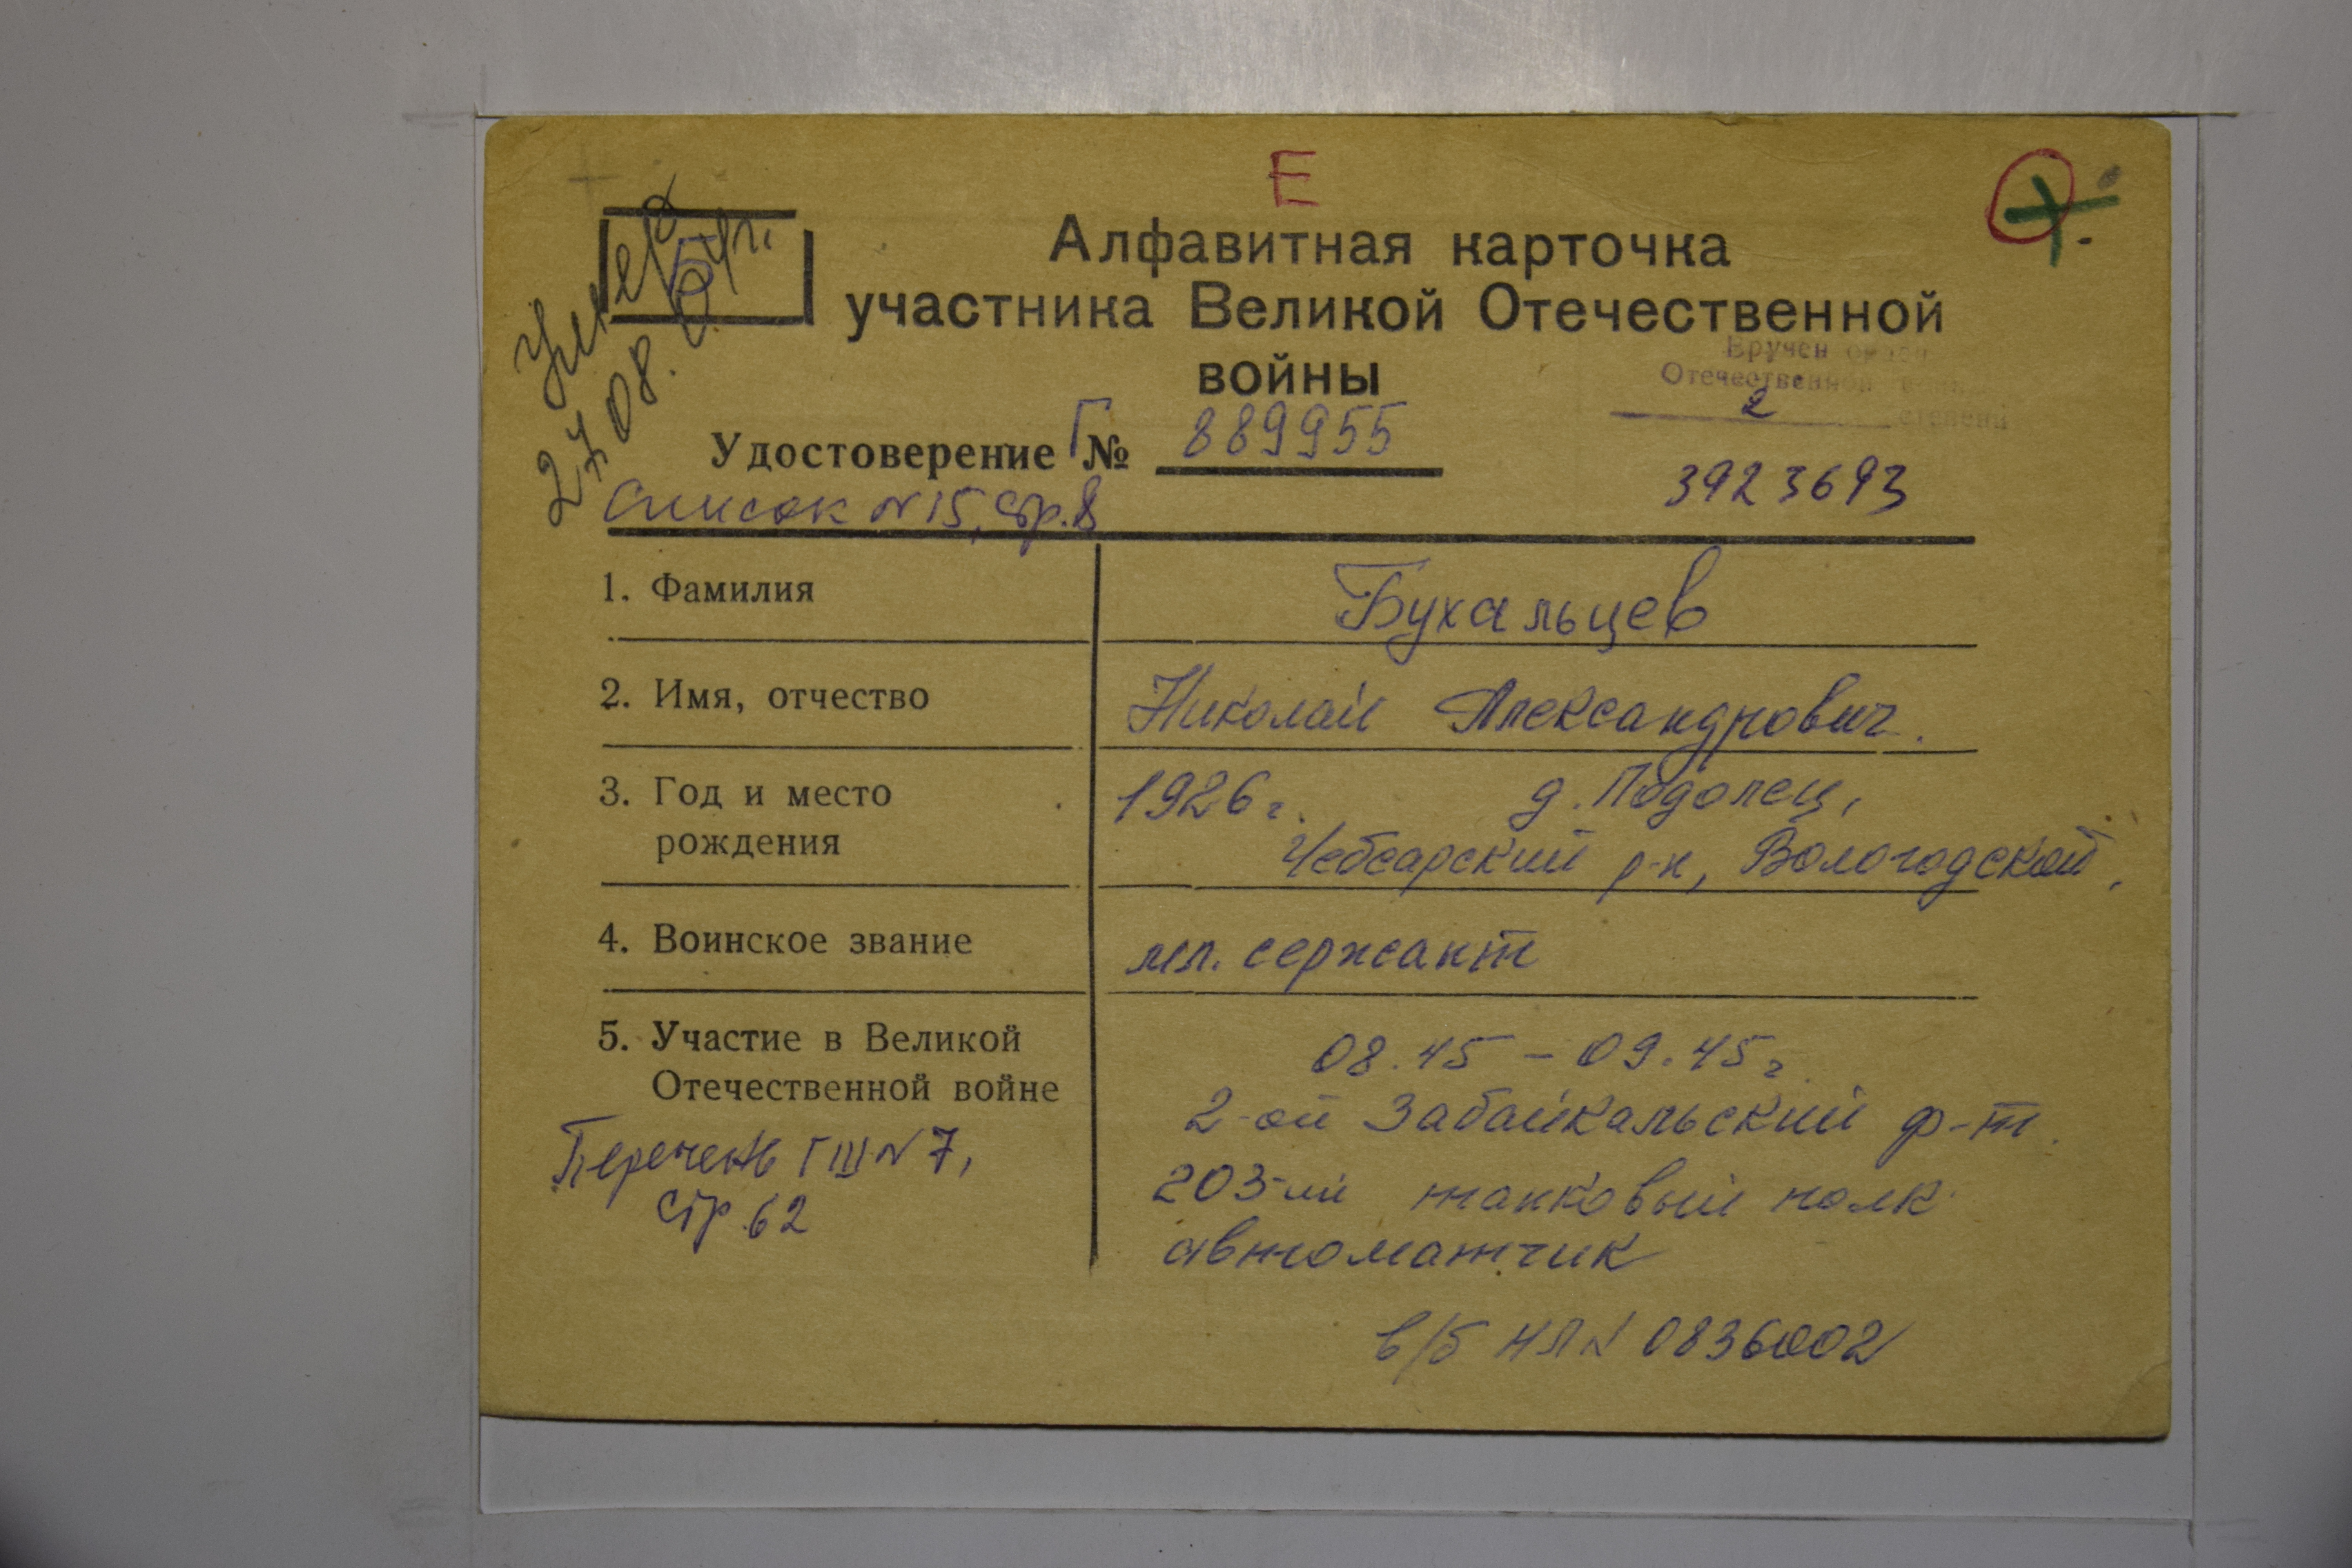 Е
Б
Умер
27.08.
Алфавитная карточка
участника Великой Отечественной
войны
Вручен орден
Отечественной войны
2 степени
Удостоверение Г № 889955
3923693
Список N 15, стр. 8
1. Фамилия
Бухальцев
2. Имя, отчество
Николай Александрович.
3. Год и место
рождения
1926 г. д. Подолец,
Чебсарский р-н, Вологодской,
4. Воинское звание
мл. сержант
5. Участие в Великой
Отечественной войне
08.45 – 09.45 г.
2-ой Забайкальский ф-т.
203-ий танковый полк
автоматчик
Перечень ГШ N 7,
стр. 62
в/б НЛ N 0836002